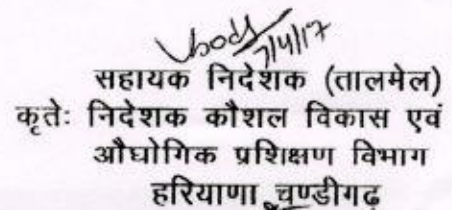 7/4/17
सहायक निदेशक (तालमेल)
कृतेः निदेशक कौशल विकास एवं
औघोगिक प्रशिक्षण विभाग
हरियाणा चण्डीगढ़